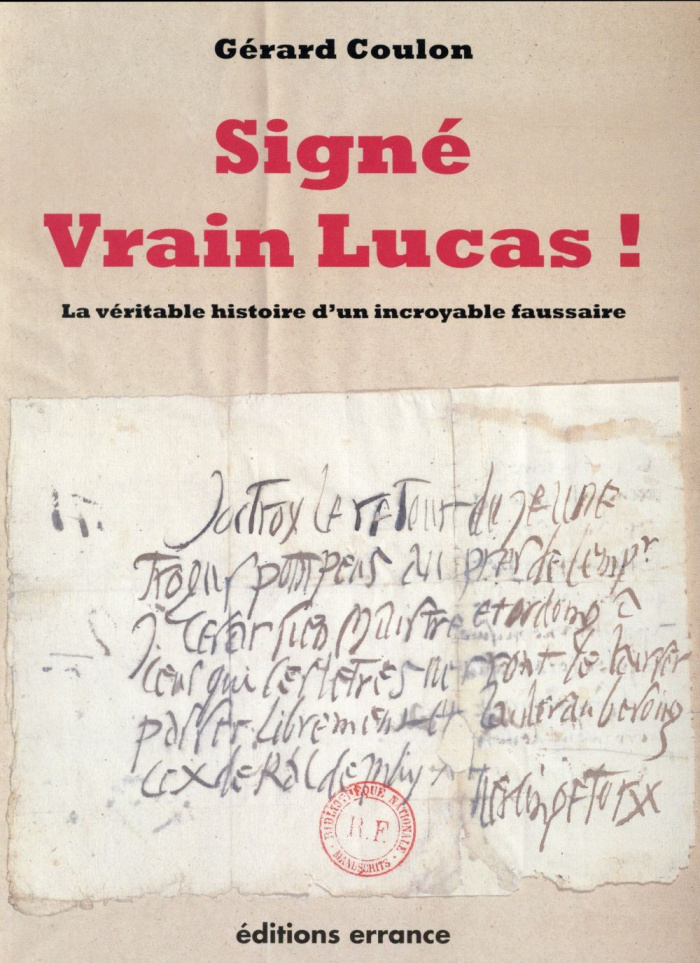 Gérard Coulon
Signé
Vrain Lucas !
La véritable histoire d'un incroyable faussaire
Joctroy le retour du jeune
Trogus pompeus au pres de lempr
j. Cesar sien Maistre et ordong a
ceux qui ces letres verront le laisser
passer librement et laider au besoing
ce x de Kal de May
Vercingetorix
BIBLIOTHÈQUE NATIONALE
R.F.
MANUSCRITS
éditions errance